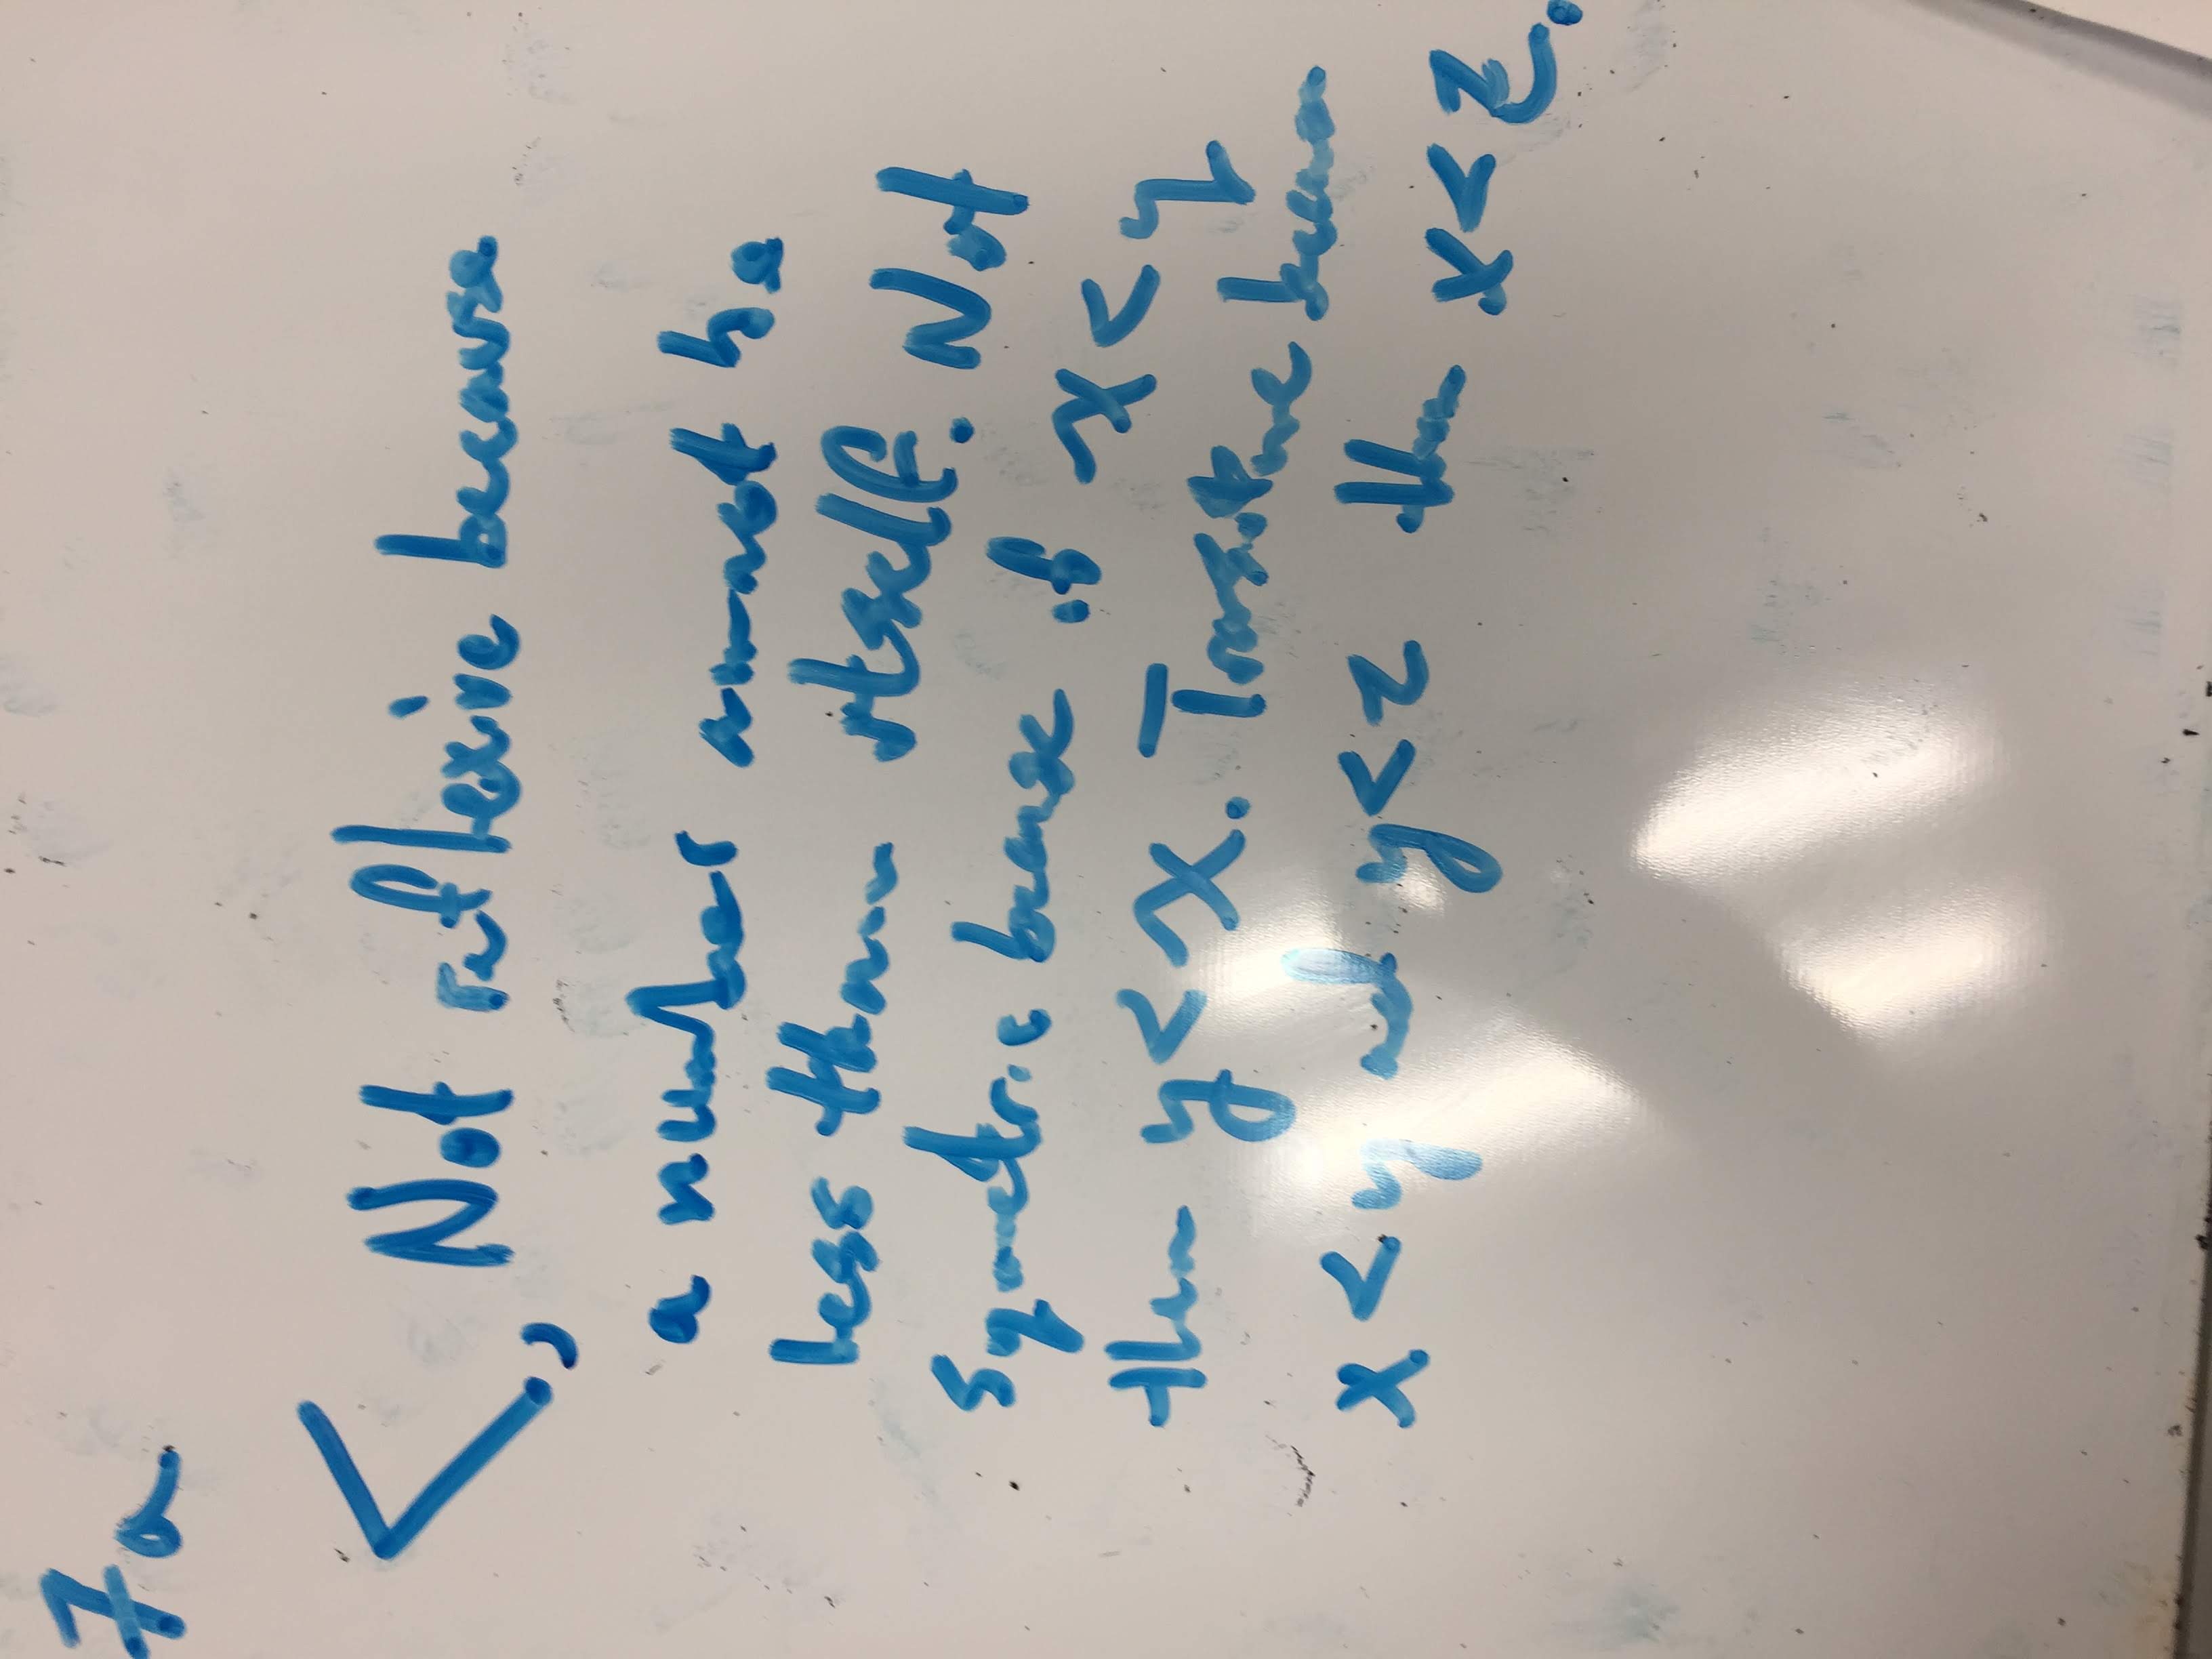 7a
<, Not reflexive because
a number cannot be
less than itself. Not
symmetric because if x < y
then y < x. Transitive because
x < y and y < z then x < z.